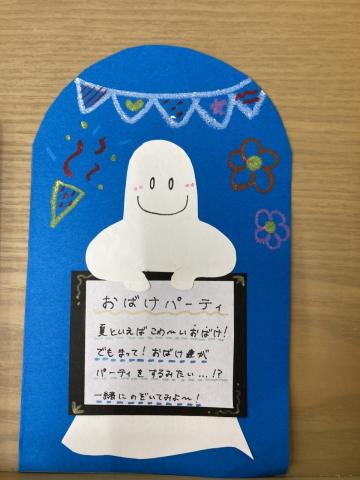 おばけパーティ
夏といえばこわ〜いおばけ!
でもまって! おばけ達が
パーティをするみたい…!?
一緒にのぞいてみよ〜!